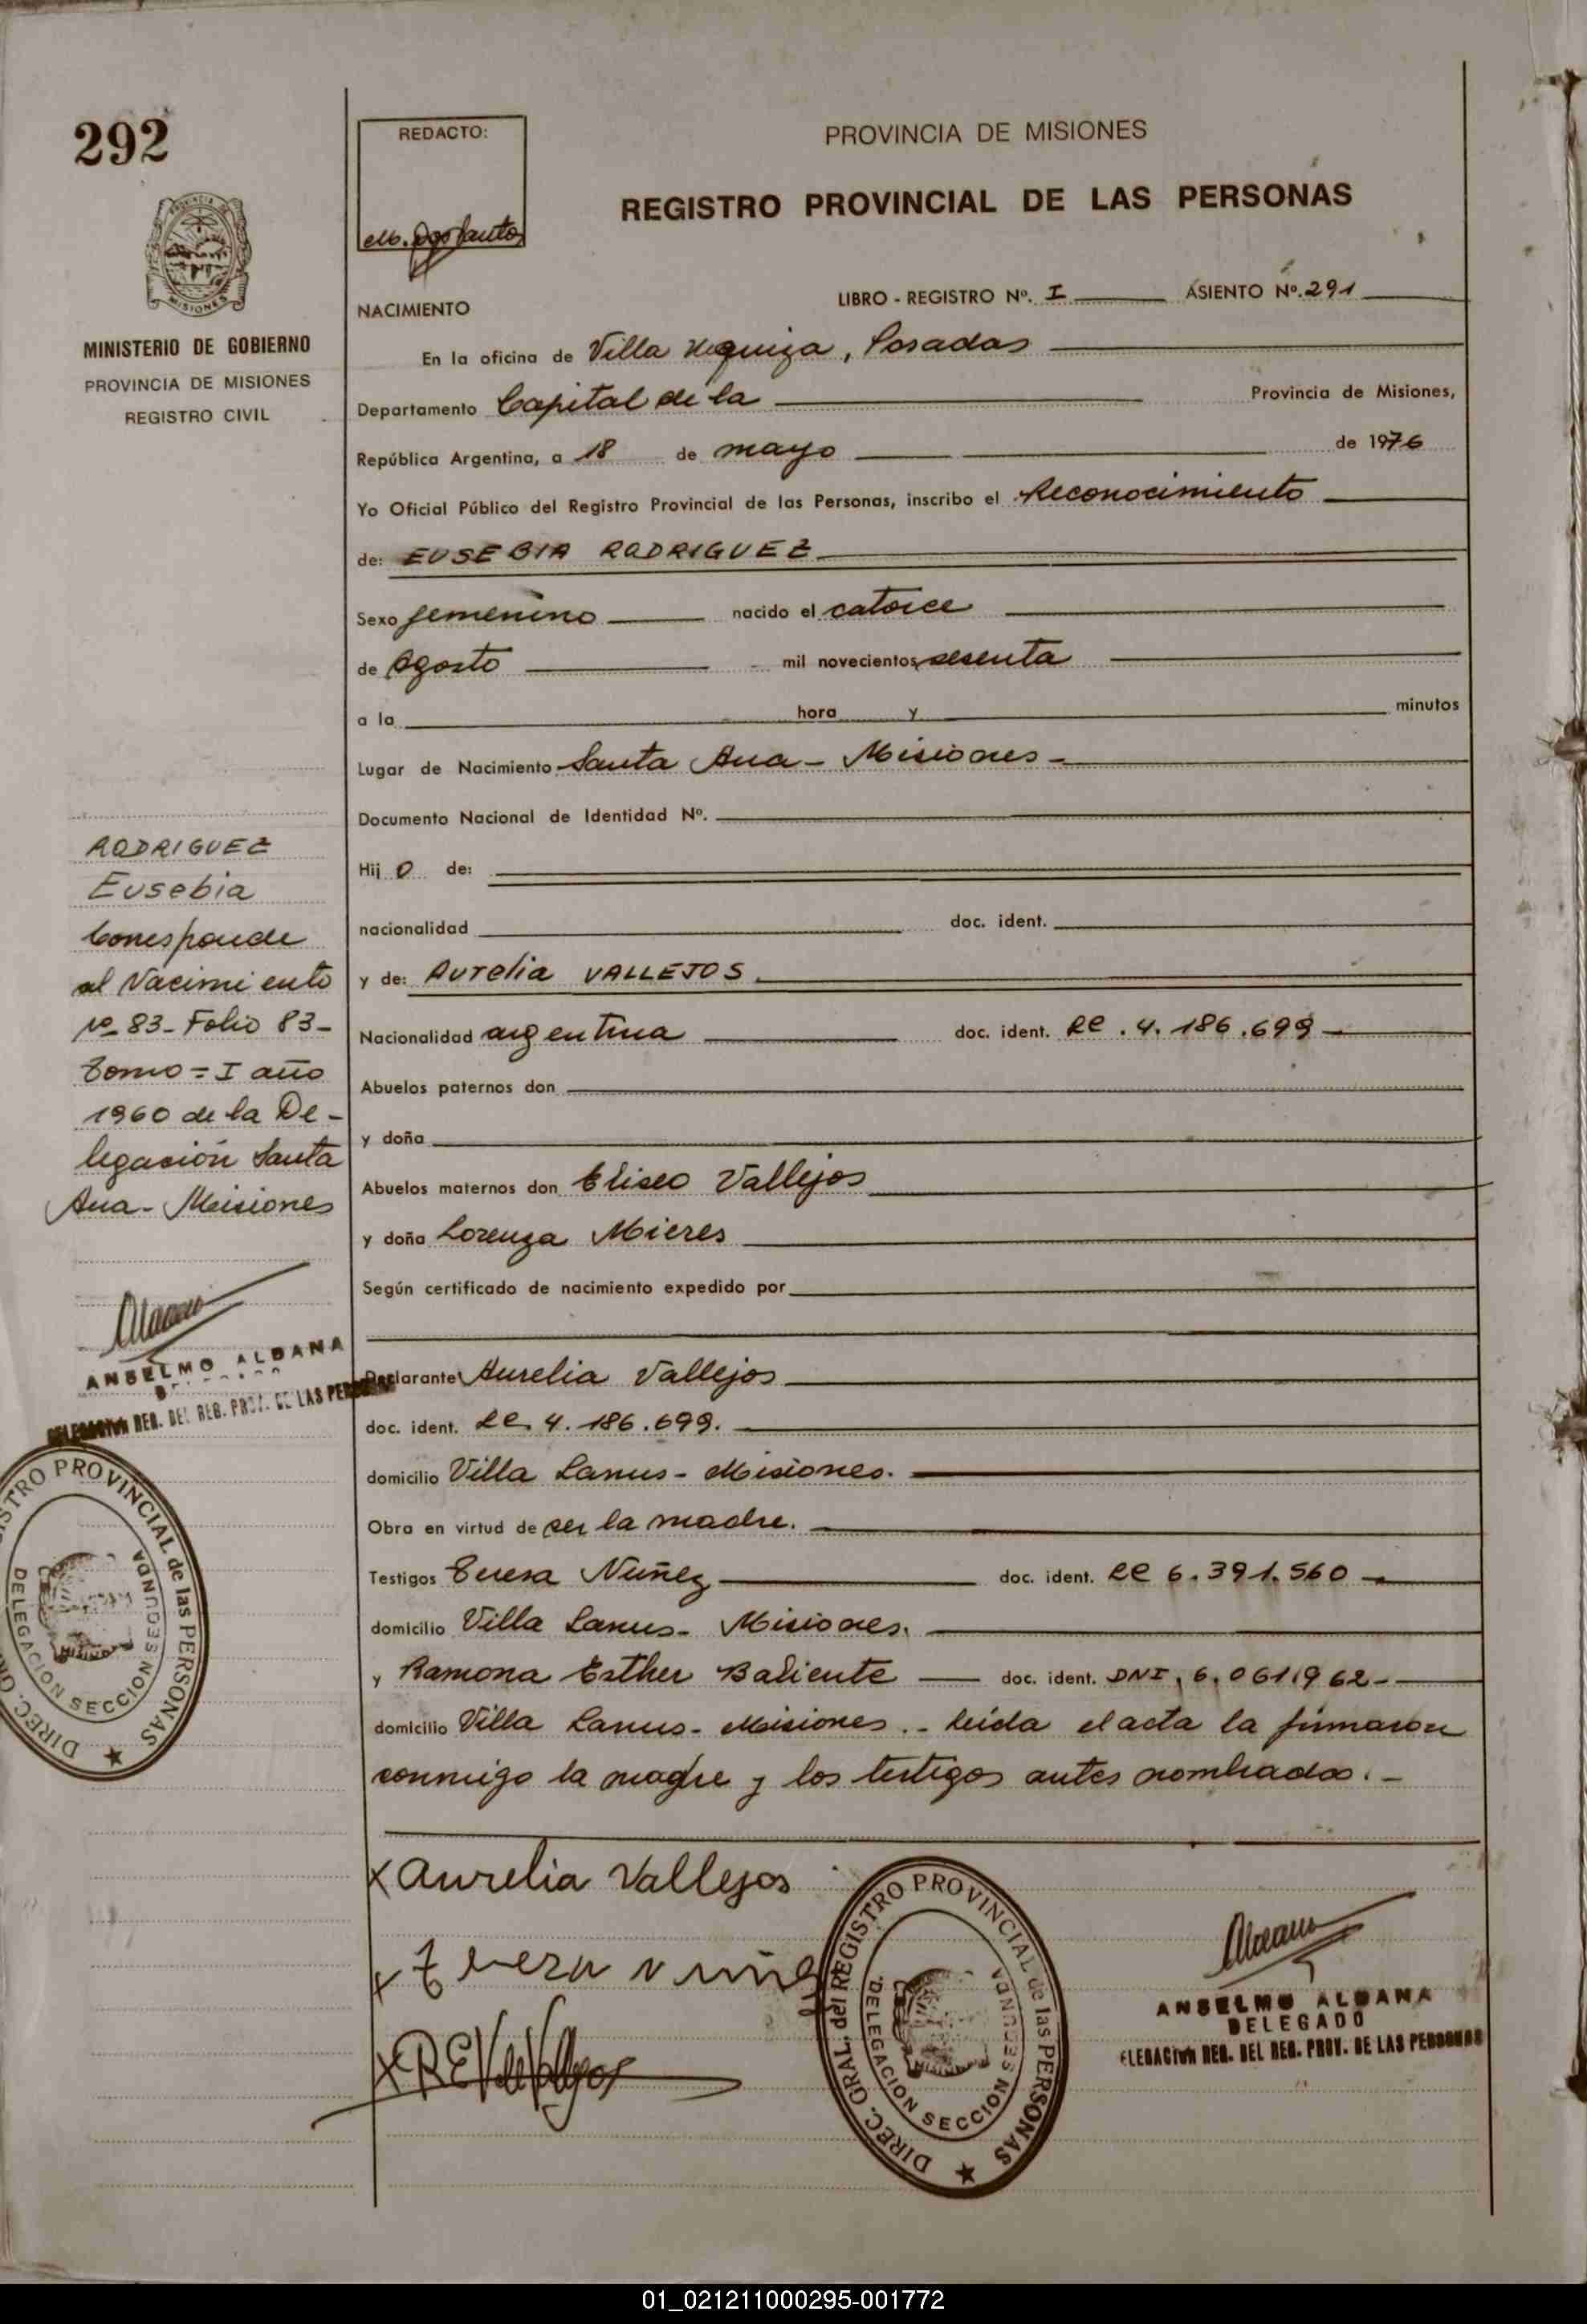 292
REDACTO:
PROVINCIA DE MISIONES
REGISTRO PROVINCIAL DE LAS PERSONAS
MISIONES
MINISTERIO DE GOBIERNO
PROVINCIA DE MISIONES
REGISTRO CIVIL
NACIMIENTO
LIBRO - REGISTRO Nº. I ASIENTO Nº. 291
En la oficina de Villa Urquiza, Posadas
Departamento Capital de la Provincia de Misiones,
República Argentina, a 18 de mayo de 1976
Yo Oficial Público del Registro Provincial de las Personas, inscribo el Reconocimiento
de: EUSEBIA RODRIGUEZ
Sexo femenino nacido el catorce
de Agosto mil novecientos sesenta
a la hora y minutos
Lugar de Nacimiento Santa Ana - Misiones -
Documento Nacional de Identidad Nº.
Hij o de:
nacionalidad doc. ident.
y de: Aurelia VALLEJOS
Nacionalidad argentina doc. ident. LC. 4. 186.699
Abuelos paternos don
y doña
Abuelos maternos don Eliseo Vallejos
y doña Lorenza Mieres
Según certificado de nacimiento expedido por
Declarante Aurelia Vallejos
doc. ident. LC. 4. 186.699.
domicilio Villa Lanus - Misiones.
Obra en virtud de ser la madre.
Testigos Teresa Nuñez doc. ident. LC 6.391.560
domicilio Villa Lanus - Misiones.
y Ramona Esther Baliente doc. ident. DNI. 6.061.962 -
domicilio Villa Lanus - Misiones. - Leída el acta la firmaron
conmigo la madre y los testigos antes nombrados. -
RODRIGUEZ
Eusebia
Corresponde
al Nacimiento
Nº 83 - Folio 83 -
Tomo = I año
1960 de la De-
legación Santa
Ana - Misiones
ANSELMO ALDANA
DELEGACION REG. DEL REG. PROV. DE LAS PERSONAS
REGISTRO PROVINCIAL de las PERSONAS
DELEGACION SECCION SEGUNDA
x Aurelia Vallejos
x Tereza nuñez
x REV de Vallejos
DIREC. GRAL. del REGISTRO PROVINCIAL de las PERSONAS
DELEGACION SECCION SEGUNDA
ANSELMO ALDANA
DELEGADO
DELEGACION REG. DEL REG. PROV. DE LAS PERSONAS
01_021211000295-001772